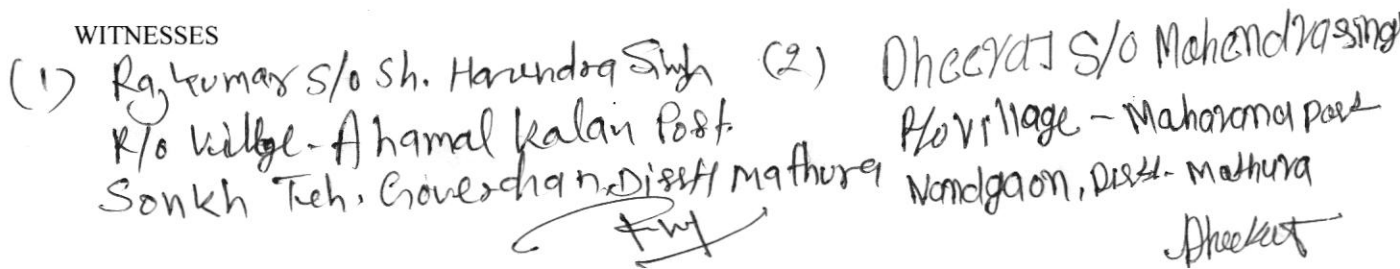 WITNESSES
(1) Rajkumar S/o Sh. Harendra Singh
R/o Village - Ahamal Kalan Post.
Sonkh Teh. Goverdhan, Distt Mathura
(2) Dheeraj S/o Mahendrasing
R/o Village - Maharana post
Nandgaon, Distt. Mathura